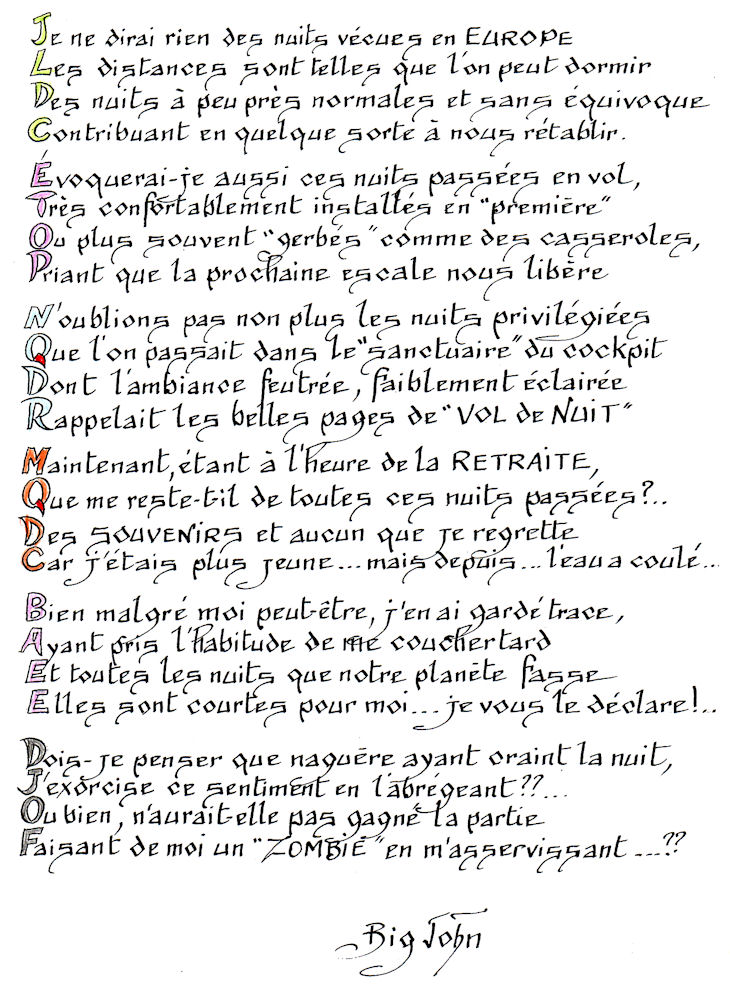 Je ne dirai rien des nuits vécues en EUROPE
Les distances sont telles que l'on peut dormir
Des nuits à peu près normales et sans équivoque
Contribuant en quelque sorte à nous rétablir.
Évoquerai-je aussi ces nuits passées en vol,
Très confortablement installés en "première"
Ou plus souvent "gerbés" comme des casseroles,
Priant que la prochaine escale nous libère
N'oublions pas non plus les nuits privilégiées
Que l'on passait dans le "sanctuaire" du cockpit
Dont l'ambiance feutrée, faiblement éclairée
Rappelait les belles pages de "VOL de NUIT"
Maintenant, étant à l'heure de la RETRAITE,
Que me reste-t-il de toutes ces nuits passées?..
Des SOUVENIRS et aucun que je regrette
Car j'étais plus jeune... mais depuis... l'eau a coulé...
Bien malgré moi peut-être, j'en ai gardé trace,
Ayant pris l'habitude de me coucher tard
Et toutes les nuits que notre planète fasse
Elles sont courtes pour moi... je vous le déclare!..
Dois-je penser que naguère ayant craint la nuit,
J'exorcise ce sentiment en l'abrégeant??...
Ou bien, n'aurait-elle pas gagné la partie
Faisant de moi un "ZOMBIE" en m'asservissant ...??
Big John